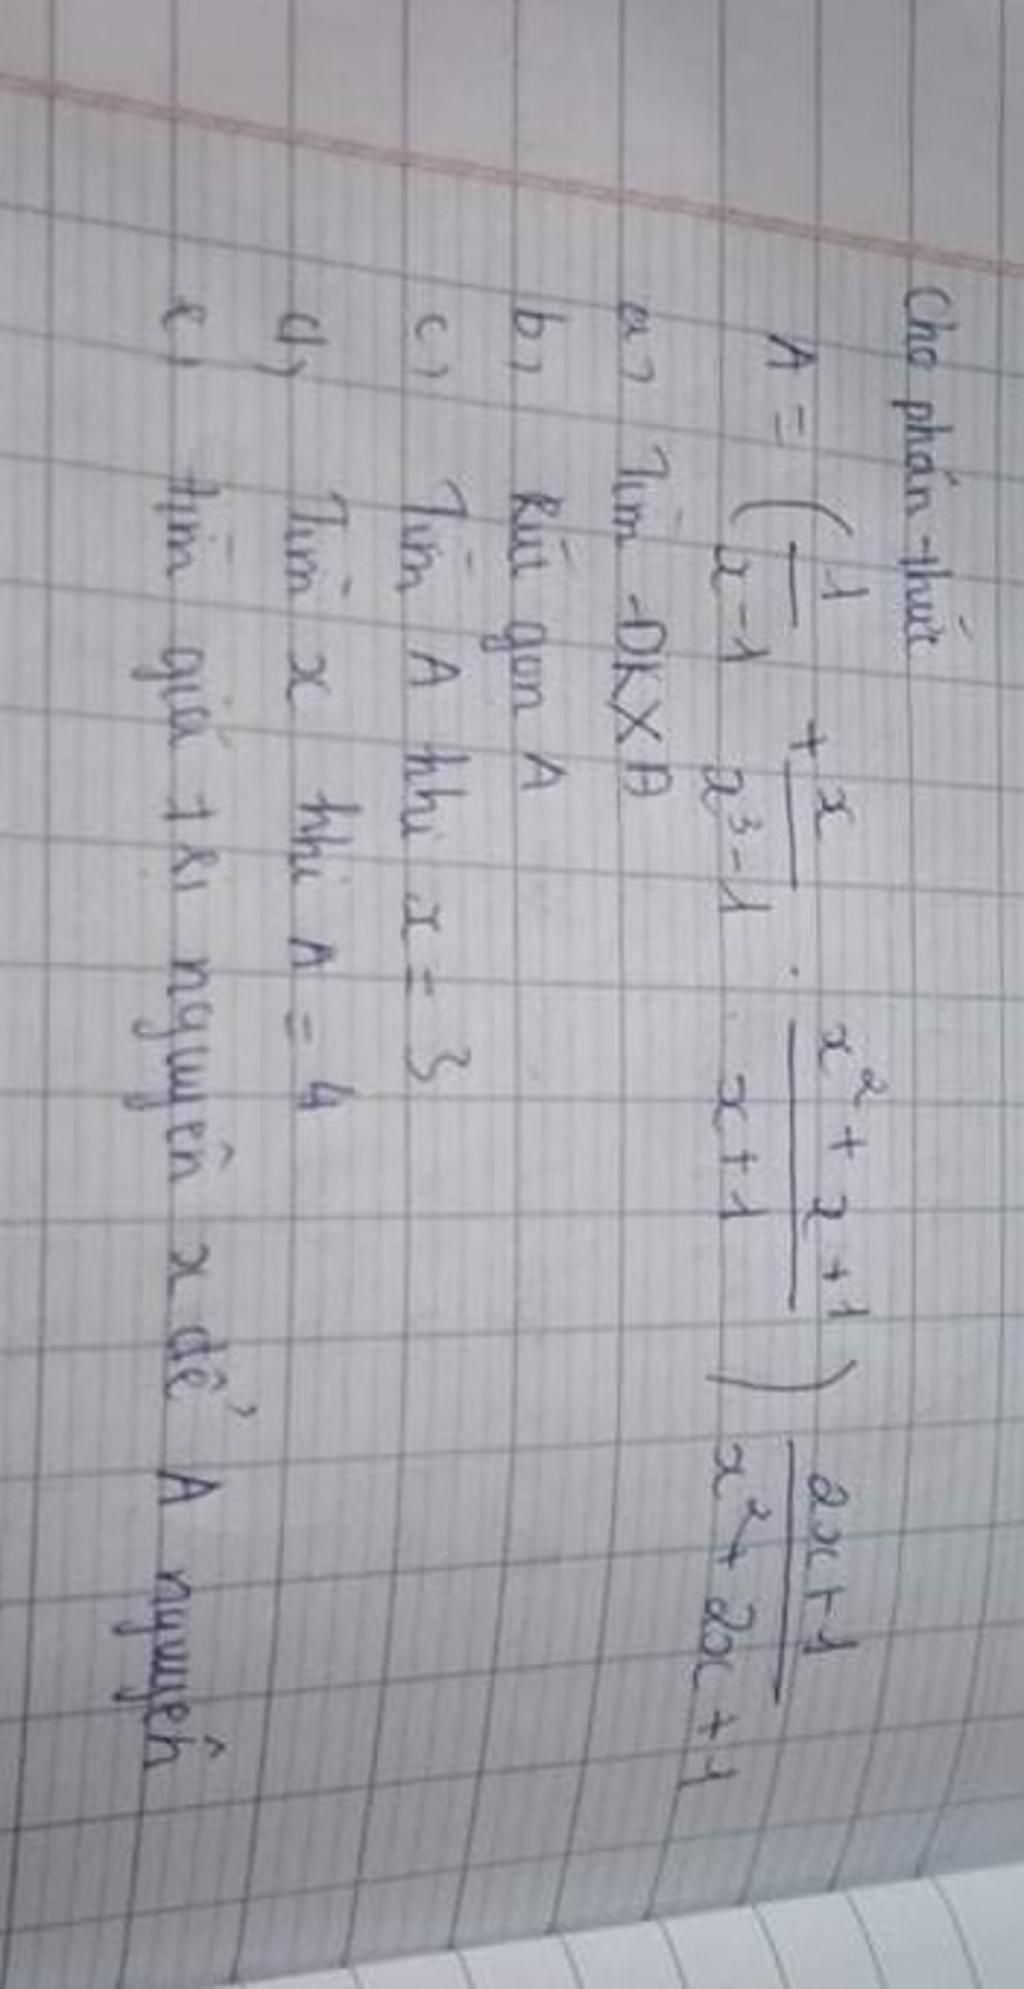 Cho phân thức
A = ( 1/(x-1) + x/(x³-1) . (x²+x+1)/(x+1) ) (2x+1)/(x²+2x+1)
a, Tìm ĐKXĐ
b, Rút gọn A
c, Tìm A khi x = 3
d, Tìm x khi A = 4
e, tìm giá trị nguyên x để A nguyên